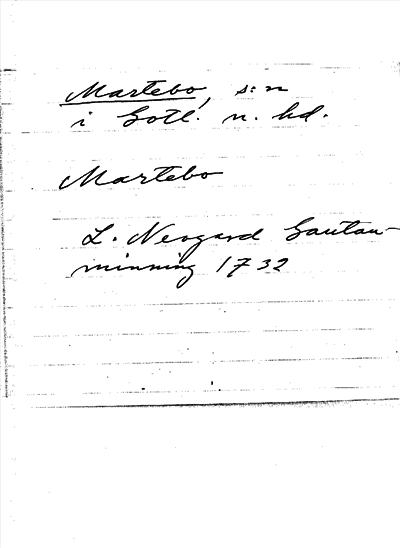 Martebo, s:n
i Gotl. n. hd.
Martebo
L. Neogard Gautau-
minning 1732